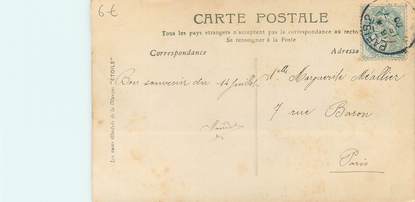 6-€
CARTE POSTALE
Tous les pays étrangers n'acceptent pas la correspondance au recto
Se renseigner à la Poste
Correspondance
Adresse
Bon souvenir du 14 juillet.
Mlle Marguerite Méallier
7 rue Baron
Paris
PARIS
"ÉTOILE"